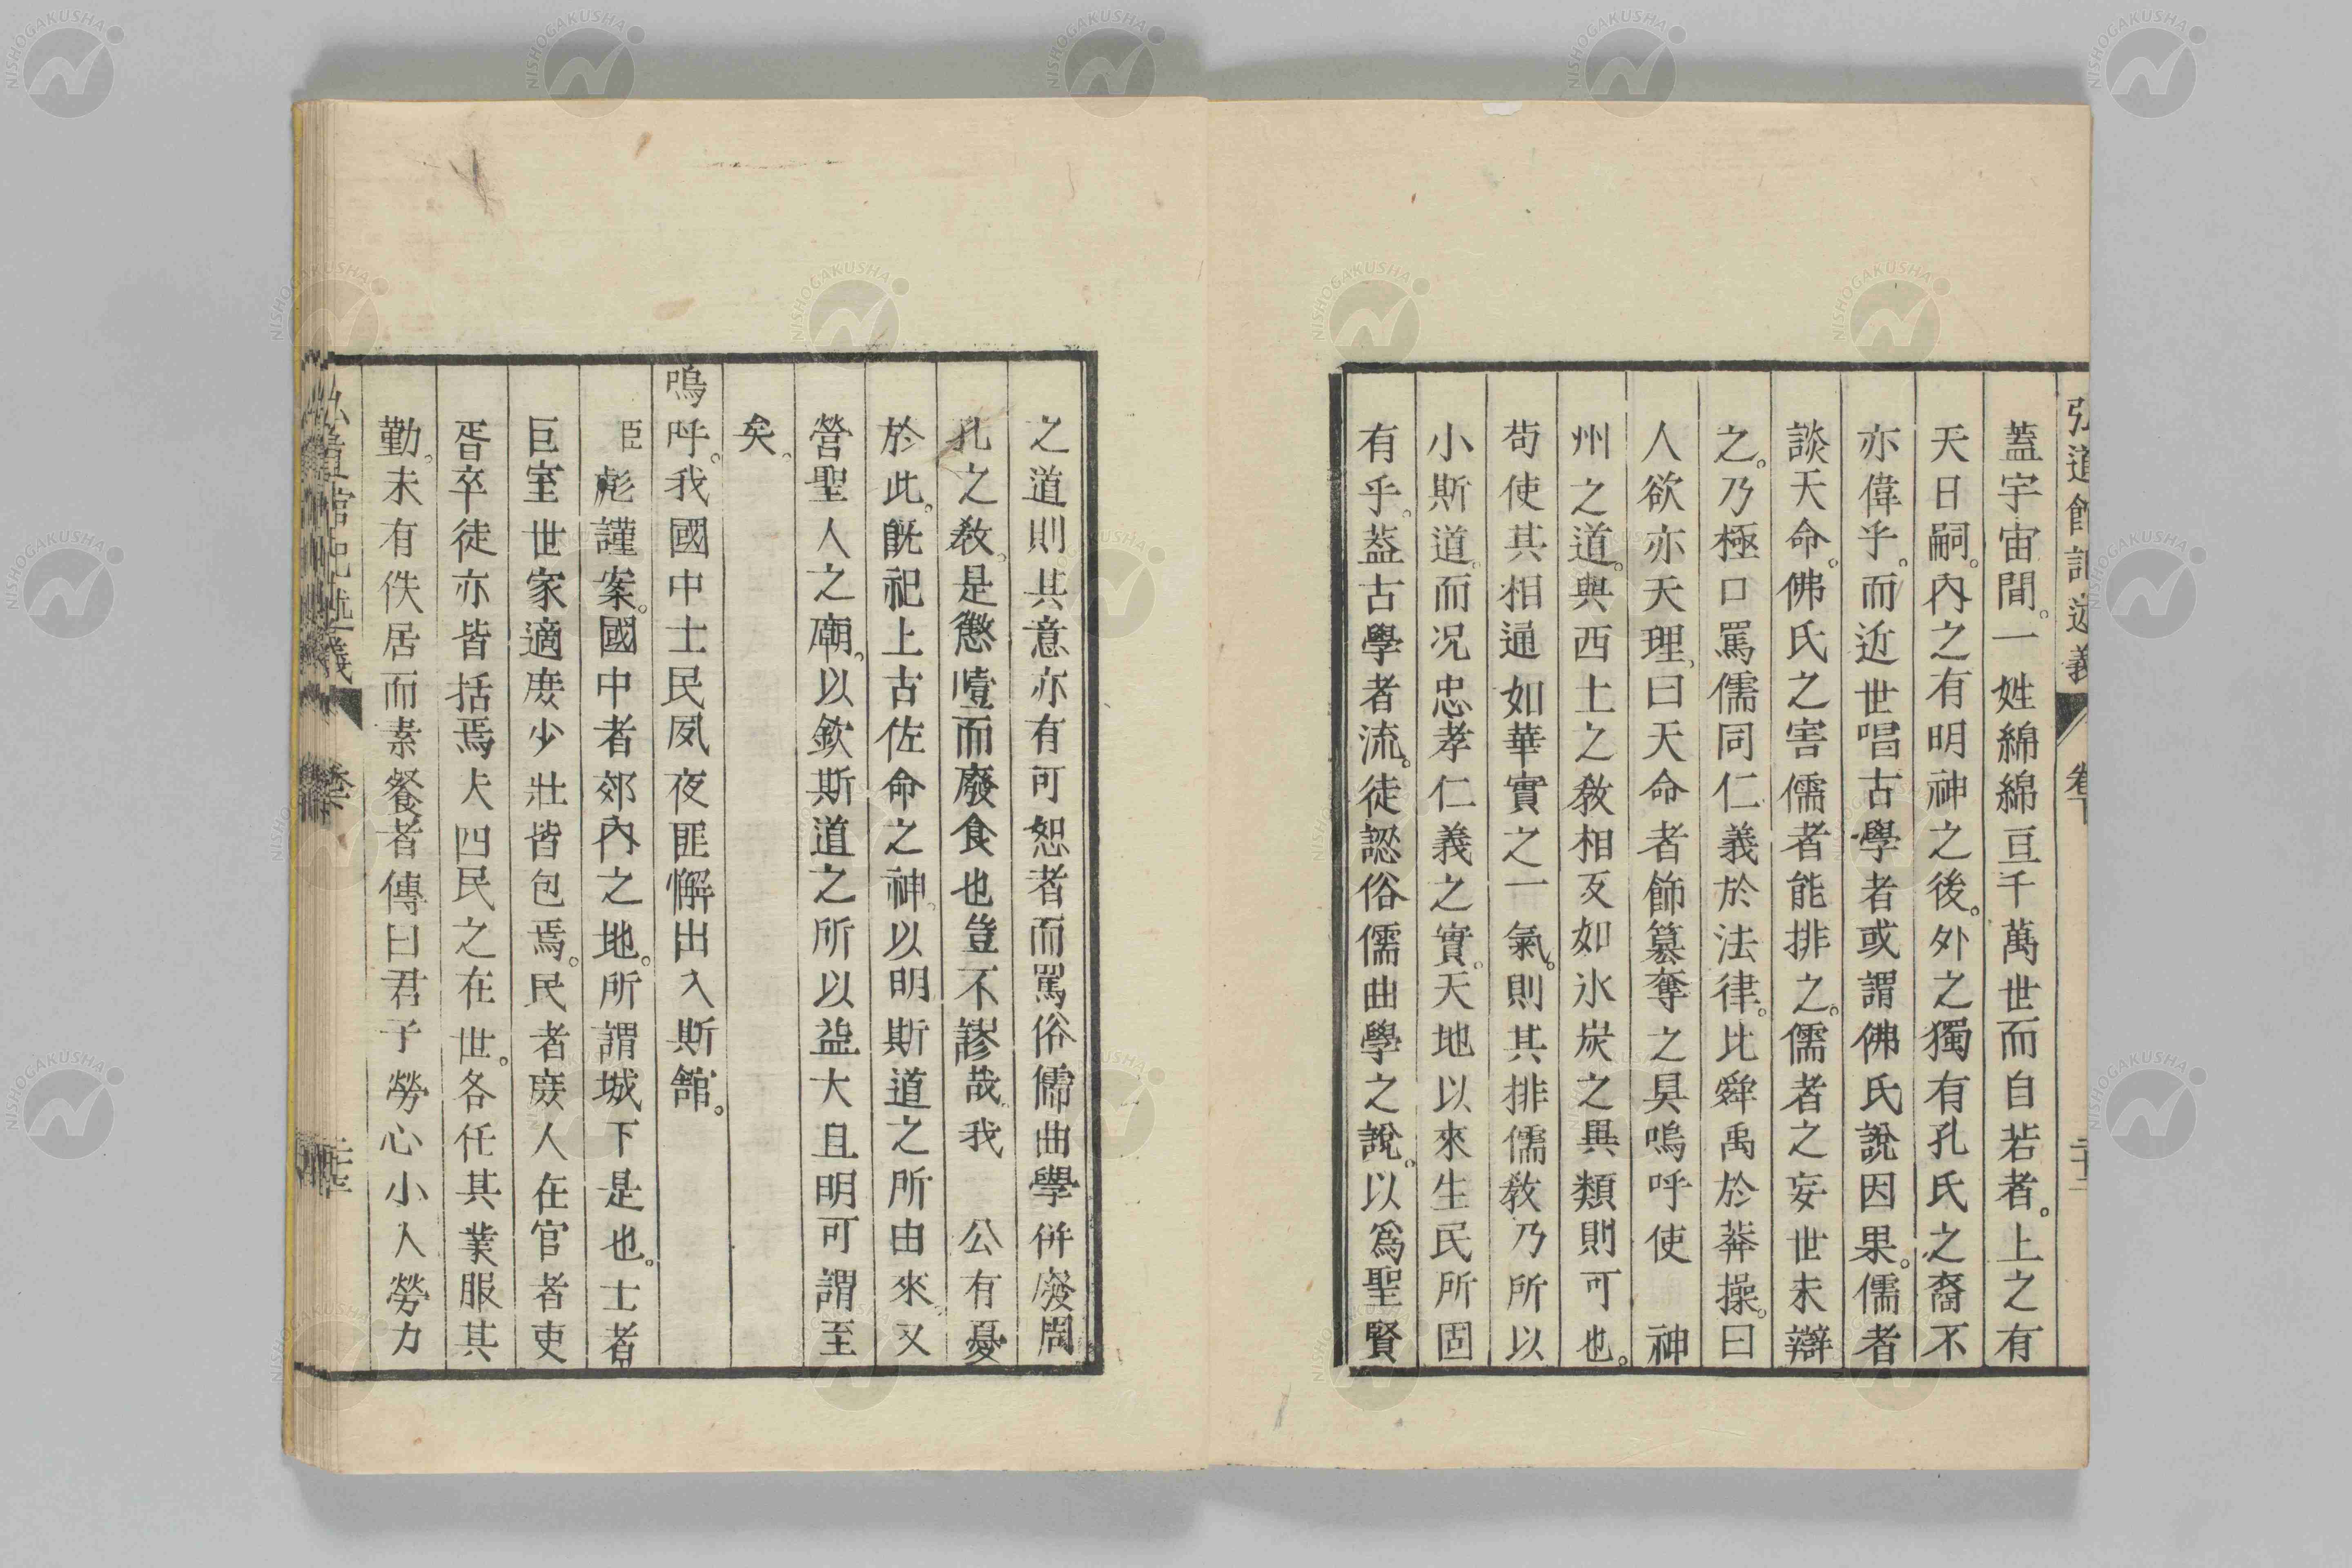 弘道館記述義 卷下
蓋宇宙間。一姓綿綿亘千萬世而自若者。上之有
天日嗣。內之有明神之後。外之獨有孔氏之裔不
亦偉乎。而近世唱古學者或謂佛氏說因果。儒者
談天命。佛氏之害儒者能排之。儒者之妄世未辯
之。乃極口罵儒同仁義於法律。比舜禹於莽操。曰
人欲亦天理。曰天命者飾簒奪之具嗚呼使 神
州之道。與西土之敎相反如氷炭之異類則可也。
苟使其相通如華實之一氣。則其排儒敎乃所以
小斯道。而况忠孝仁義之實。天地以來生民所固
有乎。葢古學者流。徒認俗儒曲學之說。以爲聖賢
之道則其意亦有可恕者而罵俗儒曲學併廢周
孔之敎。是懲噎而廢食也豈不謬哉我 公有憂
於此。旣祀上古佐命之神。以明斯道之所由來。又
營聖人之廟。以欽斯道之所以益大且明可謂至
矣。
嗚呼。我國中士民夙夜匪懈出入斯館。
臣彪謹案。國中者郊內之地。所謂城下是也。士者
巨室世家適庻少壯皆包焉。民者庻人在官者吏
胥卒徒亦皆括焉夫四民之在世。各任其業服其
勤。未有佚居而素餐者傳曰君子勞心小人勞力
弘道館記述義
NISHOGAKUSHA